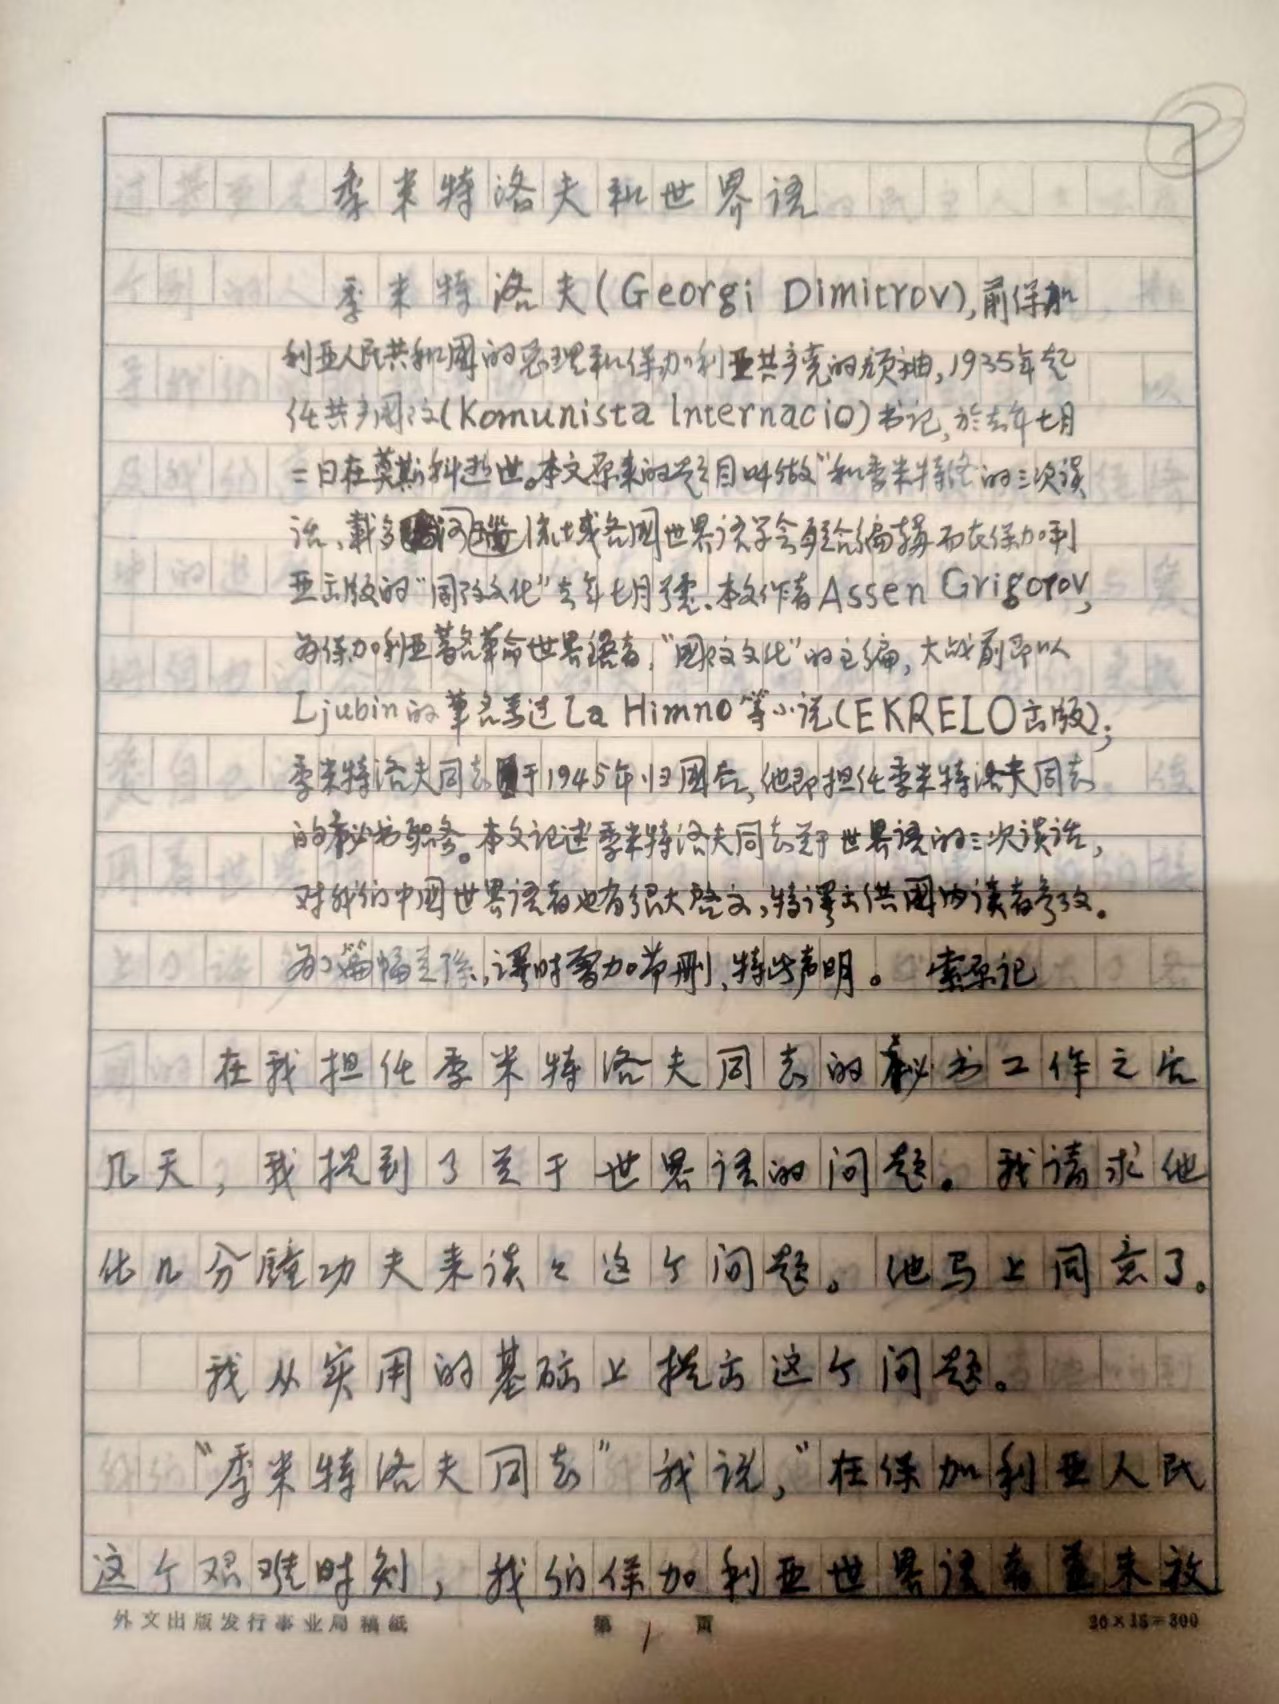 2
季米特洛夫和世界语
季米特洛夫(Georgi Dimitrov),前保加
利亚人民共和國的总理和保加利亚共产党的领袖,1935年起
任共产國际(Komunista Internacio)书记,於去年七月
二日在莫斯科逝世。本文原来的题目叫做"和季米特洛的三次谈
话,载多 各國世界语学会 编辑而在保加利
亚出版的"国际文化"去年七月号。本文作者Assen Grigorov,
为保加利亚著名革命世界语者,"国际文化"的主编,大战前即以
Ljubin的筆名著过La Himno等小说(EKRELO出版);
季米特洛夫同志于1945年归國后,他即担任季米特洛夫同志
的秘书职务。本文记述季米特洛夫同志关于世界语的三次谈话,
对我们中國世界语者也有很大啓文,特译出供國内读者参攷。
为了篇幅关係,譯时略加节删,特此声明。 索原记
在我担任季米特洛夫同志的秘书工作之后
几天,我提到了关于世界语的问题。我请求他
化几分鐘功夫来谈々这个问题。他马上同意了。
我从实用的基础上提出这个问题。
"季米特洛夫同志"我说,"在保加利亚人民
这个艰难时刻,我们保加利亚世界语者并未放
外文出版发行事业局稿纸
第 1 页
20×15=300